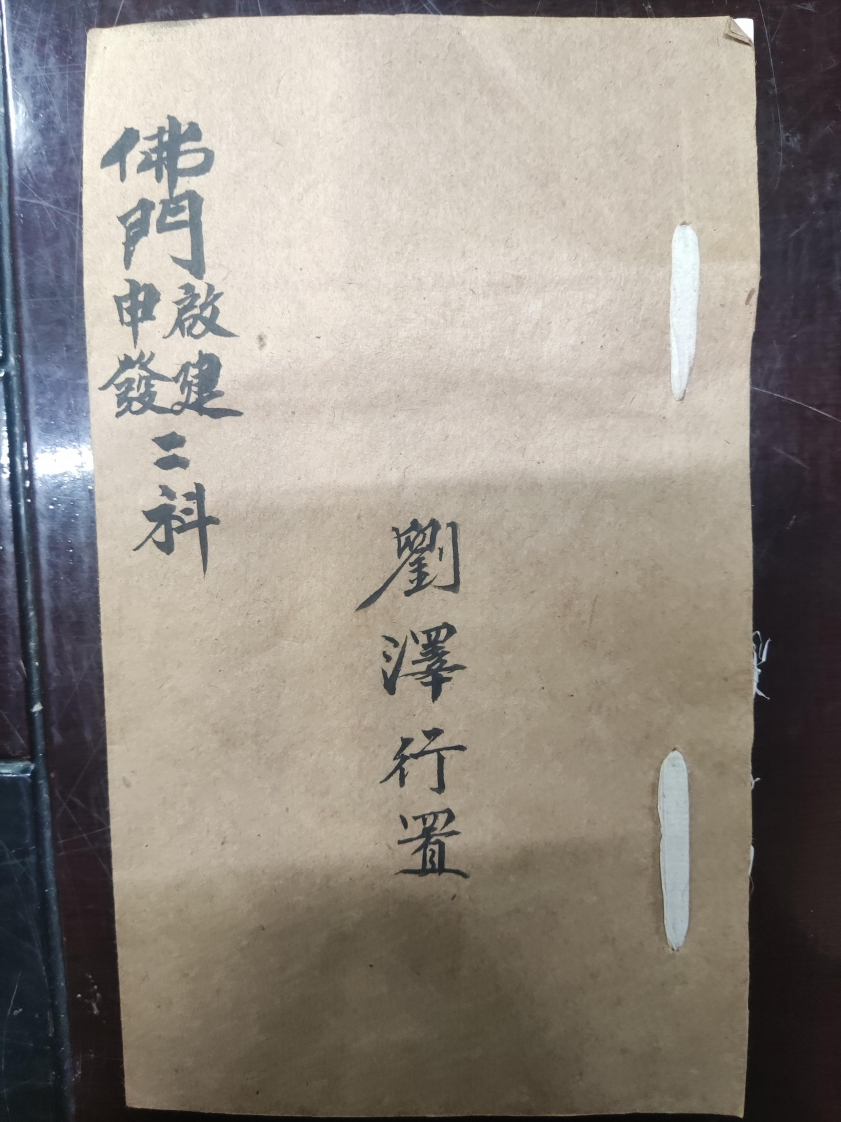 佛門啟建申發二科
劉澤行置